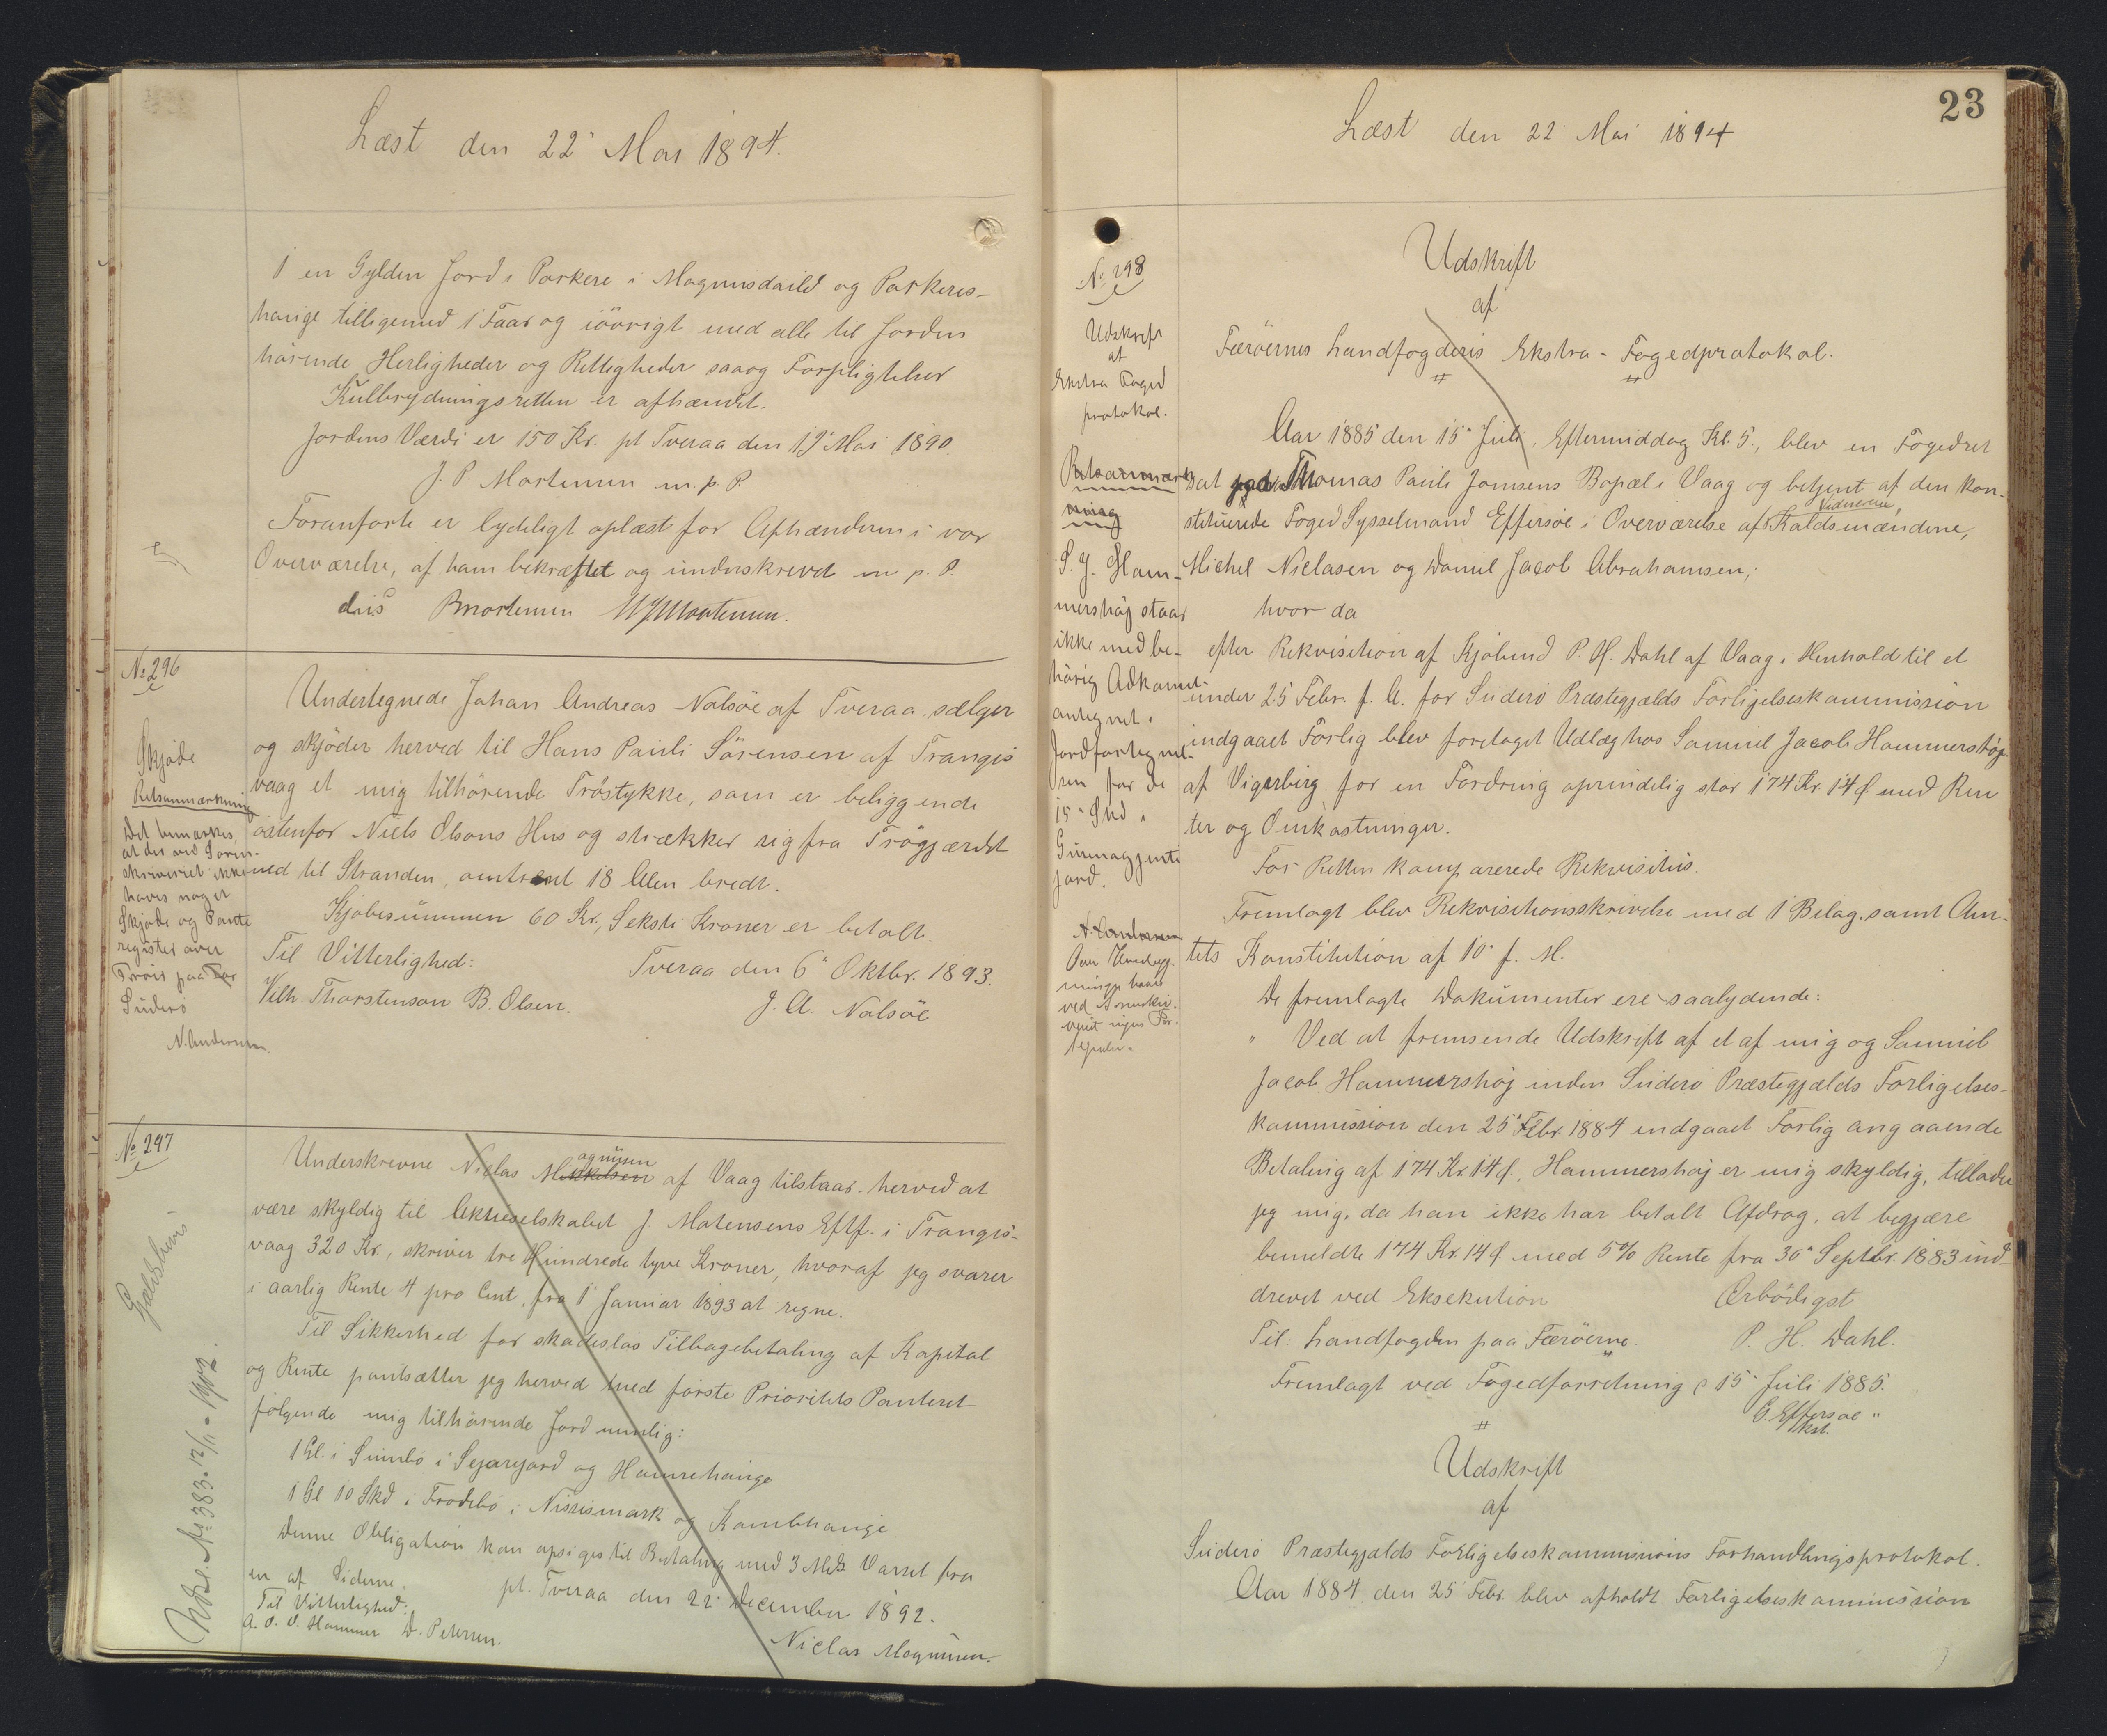 Læst den 22 Mai 1894.
1 en Gylden Jord i Porkere i Magnusdaild og Porkeres-
hauge tilligemed 1 Faar og iövrigt med alle til Jorden
hörende Herligheder og Rettigheder saaog Forpligtelser
Kulbrydningsretten er afhændet.
Jordens Værdi er 150 Kr. pt Tveraa den 19 Mai 1890
J. P. Mortensen m. p. P.
Foranforte er lydeligt oplæst for Afhænderen i vor
Overværelse, af ham bekræftet og underskrevet m p. P.
dus PMortensen MJMortensen.
No 296
Skjøde
Retsanmærkning
Det bemærkes,
at der ved Soren-
skriveriet ikke
haves noget
Skjøde og Pante
register over
Tröir paa
Suderö
N. Andersen
Undertegnede Johan Andreas Nolsöe af Tveraa sælger
og skjöder herved til Hans Pauli Sörensen af Trangis
vaag et mig tilhörende Tröstykke, som er beliggende
östenfor Niels Olsens Hus og strækker sig fra Trögjærdet
ned til Stranden, omtrent 18 Alen bredt.
Kjöbesummen 60 Kr, Seksti Kroner er betalt.
Til Vitterlighed: Tveraa den 6 Oktbr. 1893.
Vilh Thorstenson B. Olsen. J. A. Nolsöe
No 297
Gjældsbevis
Udsl. No 383. 12/11 1902.
Underskrevne Niclas Mikkelsen ognusen af Vaag tilstaar herved at
være skyldig til Aktieselskabet J. Mortensens Eftf. i Trangis-
vaag 320 Kr., skriver tre Hundrede tyve Kroner, hvoraf jeg svarer
i aarlig Rente 4 pro Cent, fra 1 Januar 1893 at regne.
Til Sikkerhed for skadeslös Tilbagebetaling af Kapital
og Rente pantsætter jeg herved med förste Prioritets Panteret
fölgende mig tilhörende Jord nemlig:
1 Gl. i Sumbö i Sejarjord og Hamrehauge
1 Gl 10 Skd i Frodebö i Nissismark og Kambhauge
Denne Obligation kan opsiges til Betaling med 3 Mds Varsel fra
en af Siderne. pt. Tveraa den 22 December 1892.
Til Vitterlighed:
A. O. V. Hammer D. Petersen. Niclas Mognusen.
23
Læst den 22 Mai 1894
No 298
Udskrift
af
Ekstra Foged
protokol.
Retsanmærk
ning
S. J. Ham-
mershöj staar
ikke med be-
hörig Adkomst
antegnet i
Jordfortegnel-
sen for de
15 Skd i
Jord.
Udskrift
af
Færöernes Landfogderis Ekstra-Fogedprotokol.
Aar 1885 den 15 Juli, Eftermiddag Kl. 5, blev en Fogedret
sat paa Thomas Pauli Joensens Bopæl i Vaag og betjent af den kon-
stituerede Foged Sysselmand Effersöe i Overværelse af Kaldsmændene,
Vidnerne,
Michel Niclasen og Daniel Jacob Abrahamsen,
hvor da
efter Rekvisition af Kjöbmd P. H. Dahl af Vaag i Henhold til et
under 25 Febr. f. A. for Suderö Præstegjælds Forligelseskommission
indgaaet Forlig blev foretaget Udlæg hos Samuel Jacob Hammershöj
af Vigerbirg for en Fordring oprindelig stor 174 Kr. 14 Ø med Ren
ter og Omkostninger.
For Retten komparerede Rekvisitus.
Fremlagt blev Rekvisitionsskrivelse med 1 Bilag, samt Am-
tets Konstitution af 10 f. M.
De fremlagte Dokumenter ere saalydende:
" Ved at fremsende Udskrift af et af mig og Samuel
Jacob Hammershöj inden Suderö Præstegjælds Forligelses-
kommission den 25 Febr 1884 indgaaet Forlig angaaende
Betaling af 174 Kr. 14 Ø, Hammershöj er mig skyldig, tillader
jeg mig, da han ikke har betalt Afdrag, at begjære
bemeldte 174 Kr. 14 Ø med 5% Rente fra 30 Septbr. 1883 ind-
drevet ved Eksekution Ærbödigst
Til: Landfogden paa Færöerne. P. H. Dahl.
Fremlagt ved Fogedforretning d 15 Juli 1885.
G. Effersöe "
kst.
Udskrift
af
Suderö Præstegjælds Forligelseskommissions Forhandlingsprotokol.
Aar 1884 den 25 Febr. blev afholdt Forligelseskommission